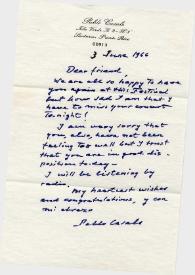 Pablo Casals
Isla Verde K 2 - H 3
Santurce, Puerto Rico
00913
3 June 1966
Dear friend,
We are all so happy to have
you again at this Festival
but how sad I am that I
have to miss your concert
tonight!
I am very sorry that
you, also, have not been
feeling too well but I trust
that you are in good dis-
positions today -
I will be listening by
radio.
My heartiest wishes
and congratulations, y con
mi abrazo
Pablo Casals